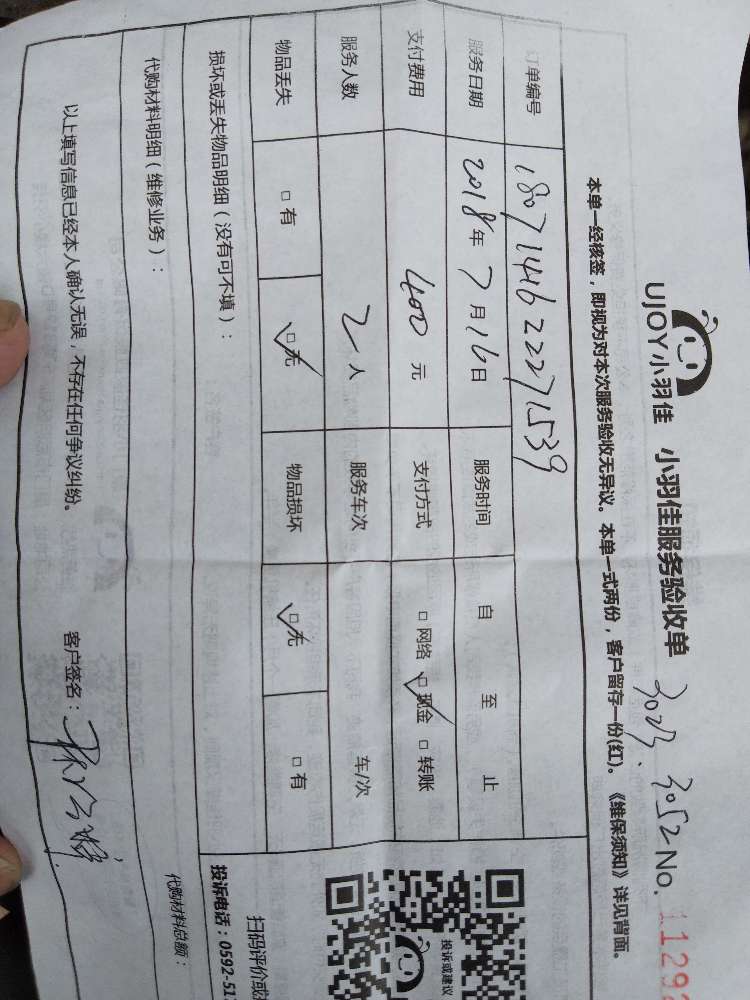 UJOY小羽佳 小羽佳服务验收单 3052 No. 1129
本单一经核签，即视为对本次服务验收无异议。本单一式两份，客户留存一份(红)。《维保须知》详见背面。
订单编号 1807144622271539
服务日期 2018年7月16日 服务时间 自 至 止
支付费用 400元 支付方式 □网络 ☑现金 □转账
服务人数 2人 服务车次 车/次
物品丢失 □有 ☑无 物品损坏 ☑无 □有
损坏或丢失物品明细（没有可不填）：
代购材料明细（维修业务）：
代购材料总额：
以上填写信息已经本人确认无误，不存在任何争议纠纷。 客户签名：
投诉或建议
扫码评价或
投诉电话：0592-51